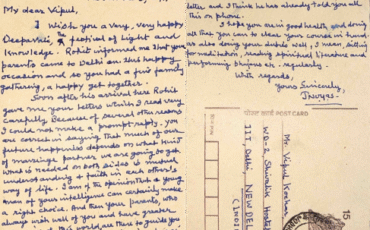 My dear Vipul,
I Wish you a very, very happy
Deepavali, a festival of light and
Knowledge. Rohit informed me that your
parents came to Delhi on this happy
occasion and so you had a fine family
gathering, a happy get together.
Soon after his arrival here Rohit
gave me your letters which I read very
carefully. Because of several other reasons
I could not make a prompt reply. You
are correct in saying that much of our
future happiness depends on what kind
of marriage partner we are going to get
what is needed on both sides is mutual
understanding & faith in each other's
way of life. I am of the opinion that a young
man of your intelligence can certainly make
a right choice. And then your parents, who
always wish well of you and have greater
this world are there to guide you
letter and I think he has already told you all
this on phone.
I hope you are in good health, and doing
all that you can to clear your course in hand
as also doing your duties well, I mean, sitting
for meditation, reading spiritual literature and
performing bhajans etc. regularly.
With regards,
Yours Sincerely,
Mr. Vipul
Shivalik Hostel
IIT Delhi, NEW DELHI
15